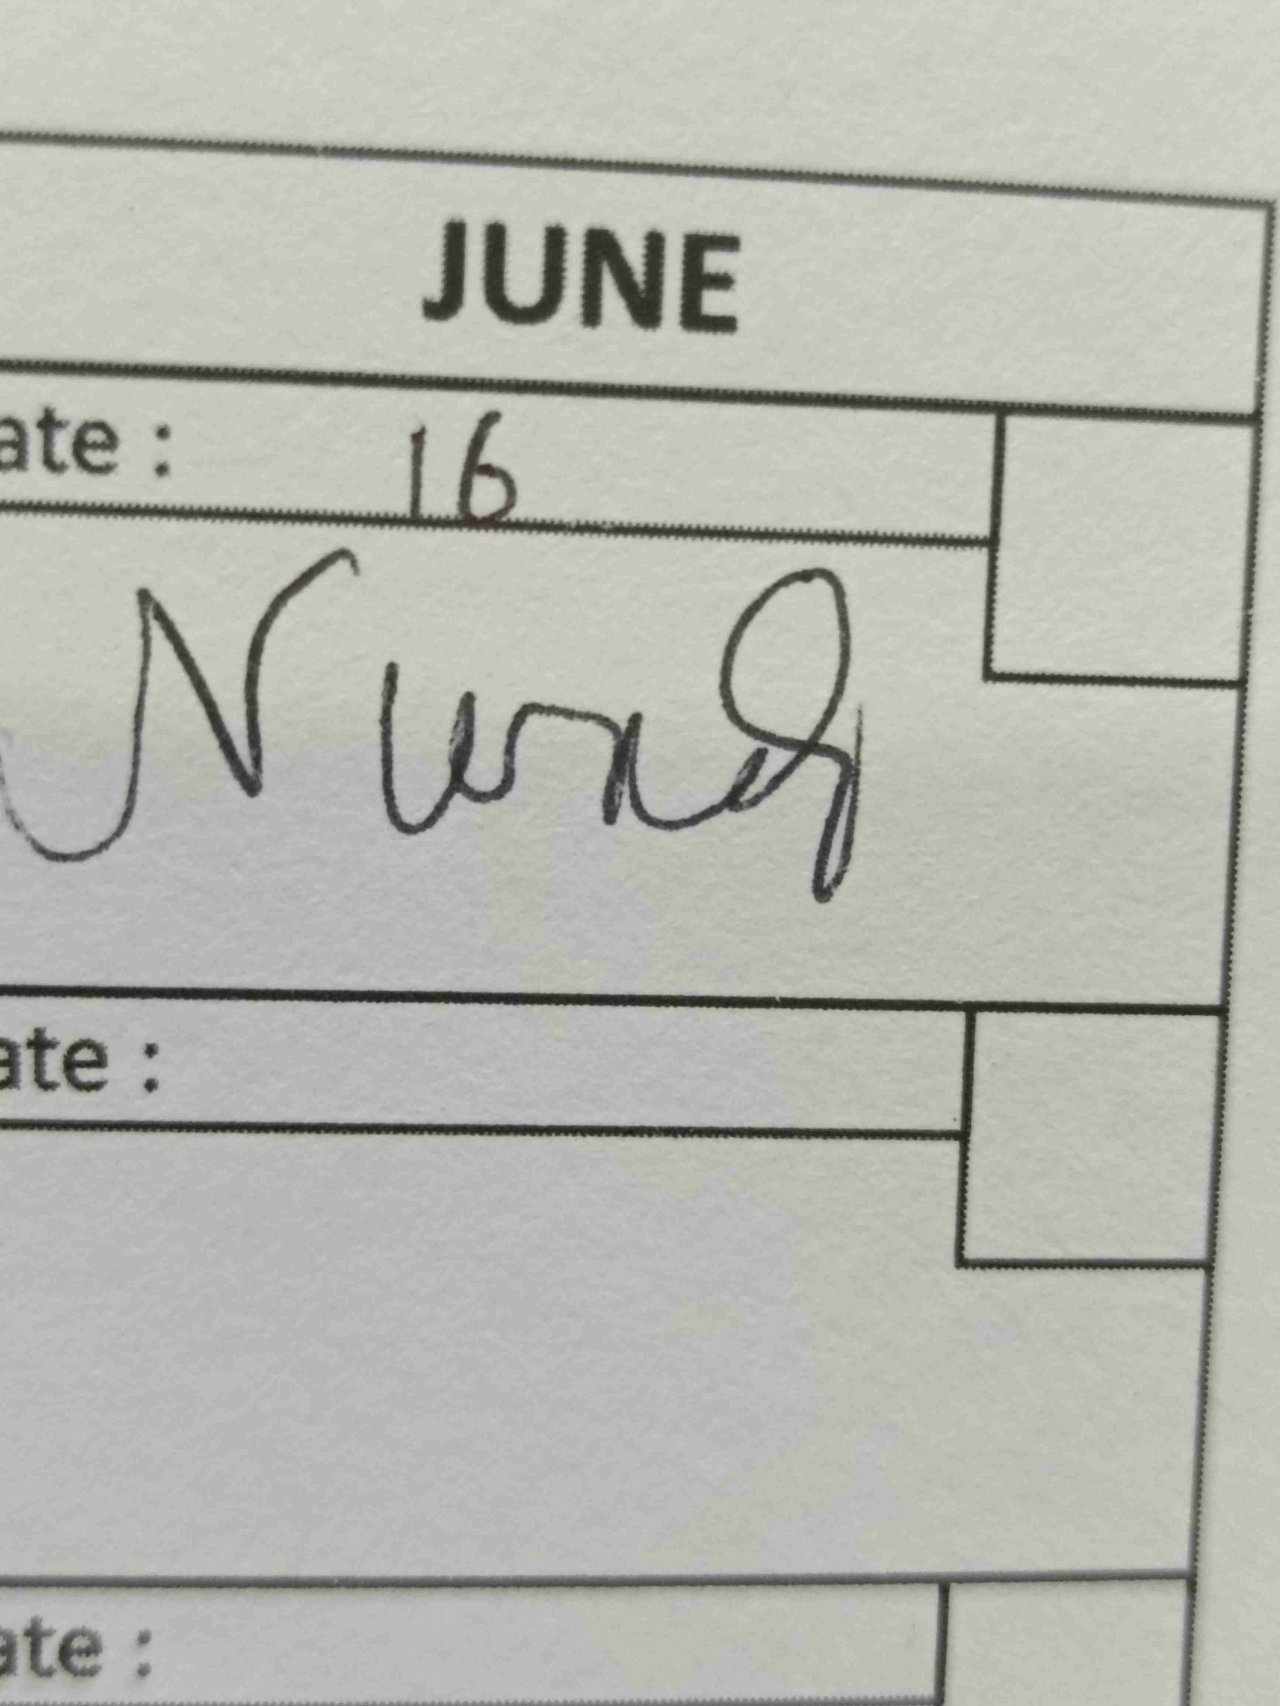 JUNE
ate : 16
ate :
ate :